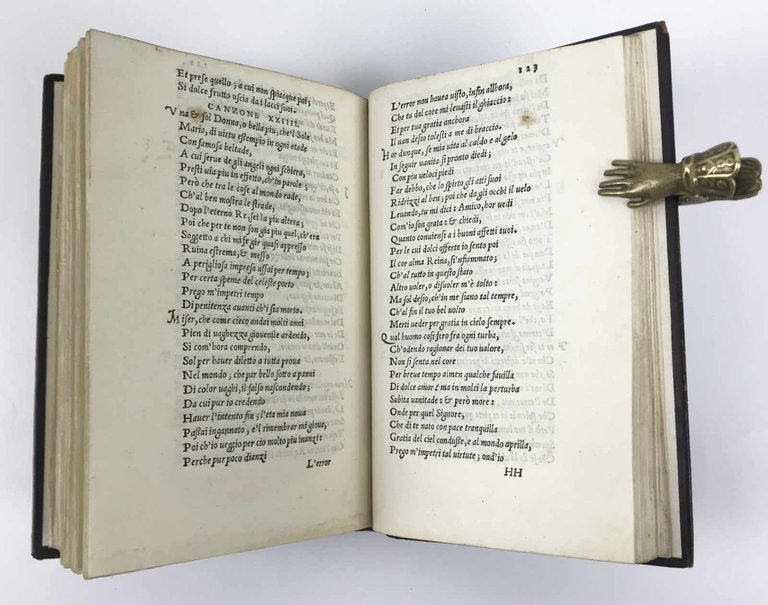 Et prese quello; a cui non spiacque poi;
Si dolce frutto uscia da i lacci suoi.
CANZONE XXIIII.
Vna & sol Donna, o bella piu, che'l Sole
Maria, di uirtu essempio in ogni etade
Con famosa beltade,
A cui serue de gli angeli ogni schiera,
Presti uia piu in effetto, ch'in parole;
Però che tra le cose al mondo rade,
Ch'al ben mostra le strade,
Dopo l'eterno Re, sei la piu altera;
Poi che per te non son gia piu quel, ch'era
Soggetto a chi mi se gir quasi appresso
Ruina estrema, & messo
A perigliosa impresa assai per tempo;
Per certa speme del celeste porto
Prego m'impetri tempo
Di penitenza auanti ch'i sia morto.
Miser, che come cieco andai molti anni
Pien di uaghezza giouenile ardendo,
Si com'hora comprendo,
Sol per hauer diletto a tutta proua
Nel mondo; che par bello sotto a panni
Di color uaghi, il falso nascondendo;
Da cui pur io credendo
Hauer l'intento fin; l'età mia noua
Passai ingannato; e'l rimembrar mi gioua,
Poi ch'io ueggio per cio molto piu inanzi:
Perche pur poco dianzi
L'error
123
L'error non hauea uisto, infin allhora,
Che tu dal core mi leuasti il ghiaccio:
Et per tua gratia anchora
Il uan desio tolesti a me di braccio.
Hor dunque, se mia uita al caldo e al gelo
In seguir uanita si pronto diedi;
Con piu ueloci piedi
Far debbo, che lo spirto gli atti suoi
Ridrizzi al ben; poi che da gli occhi il uelo
Leuando, tu mi dici: Amico, hor uedi
Com'io son grata: & chiedi,
Quanto conuiensi a i buoni affetti tuoi.
Per le cui dolci offerte io sento poi
Il cor alma Reina, si'nfiammato;
Ch'al tutto in questo stato
Altro uoler, o disuoler m'è tolto:
Ma sol desio, ch'in me sian tal tempre,
Ch'al fin il tuo bel uolto
Merti ueder per gratia in cielo sempre.
Qual huomo così fero fra ogni turba,
Ch'odendo ragionar del tuo ualore,
Non si senta nel core
Per breue tempo almen qualche fauilla
Di dolce amor? ma in molti la perturba
Subita uanitade: & però more:
Onde per quel Signore,
Che di te nato con pace tranquilla
Gratia del ciel condusse, e al mondo aprilla,
Prego m'impetri tal uirtute; ond'io
HH